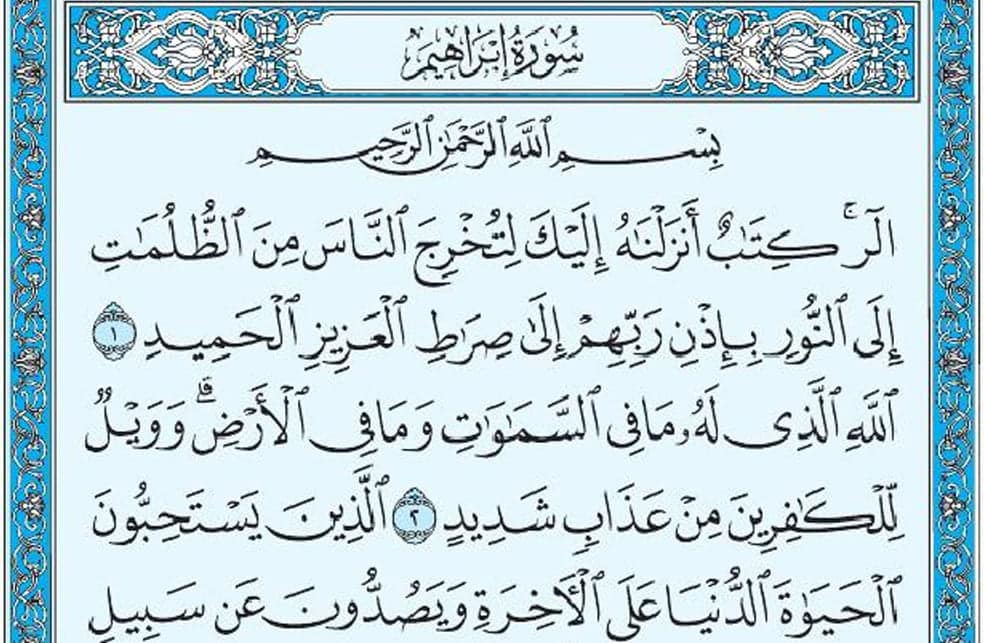 سُورَةُ إِبْرَاهِيمَ
بِسْمِ ٱللَّهِ ٱلرَّحْمَٰنِ ٱلرَّحِيمِ
الٓرۚ كِتَٰبٌ أَنزَلْنَٰهُ إِلَيْكَ لِتُخْرِجَ ٱلنَّاسَ مِنَ ٱلظُّلُمَٰتِ
إِلَى ٱلنُّورِ بِإِذْنِ رَبِّهِمْ إِلَىٰ صِرَٰطِ ٱلْعَزِيزِ ٱلْحَمِيدِ ١
ٱللَّهِ ٱلَّذِى لَهُۥ مَا فِى ٱلسَّمَٰوَٰتِ وَمَا فِى ٱلْأَرْضِۗ وَوَيْلٌ
لِّلْكَٰفِرِينَ مِنْ عَذَابٍ شَدِيدٍ ٢ ٱلَّذِينَ يَسْتَحِبُّونَ
ٱلْحَيَوٰةَ ٱلدُّنْيَا عَلَى ٱلْأٓخِرَةِ وَيَصُدُّونَ عَن سَبِيلِ